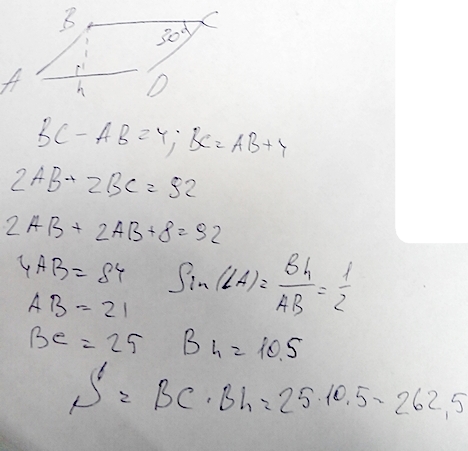 B C
30°
A h D
BC - AB = 4; BC = AB + 4
2AB + 2BC = 92
2AB + 2AB + 8 = 92
4AB = 84 Sin(∠A) = Bh/AB = 1/2
AB = 21
BC = 25 Bh = 10.5
S = BC · Bh = 25 · 10.5 = 262,5